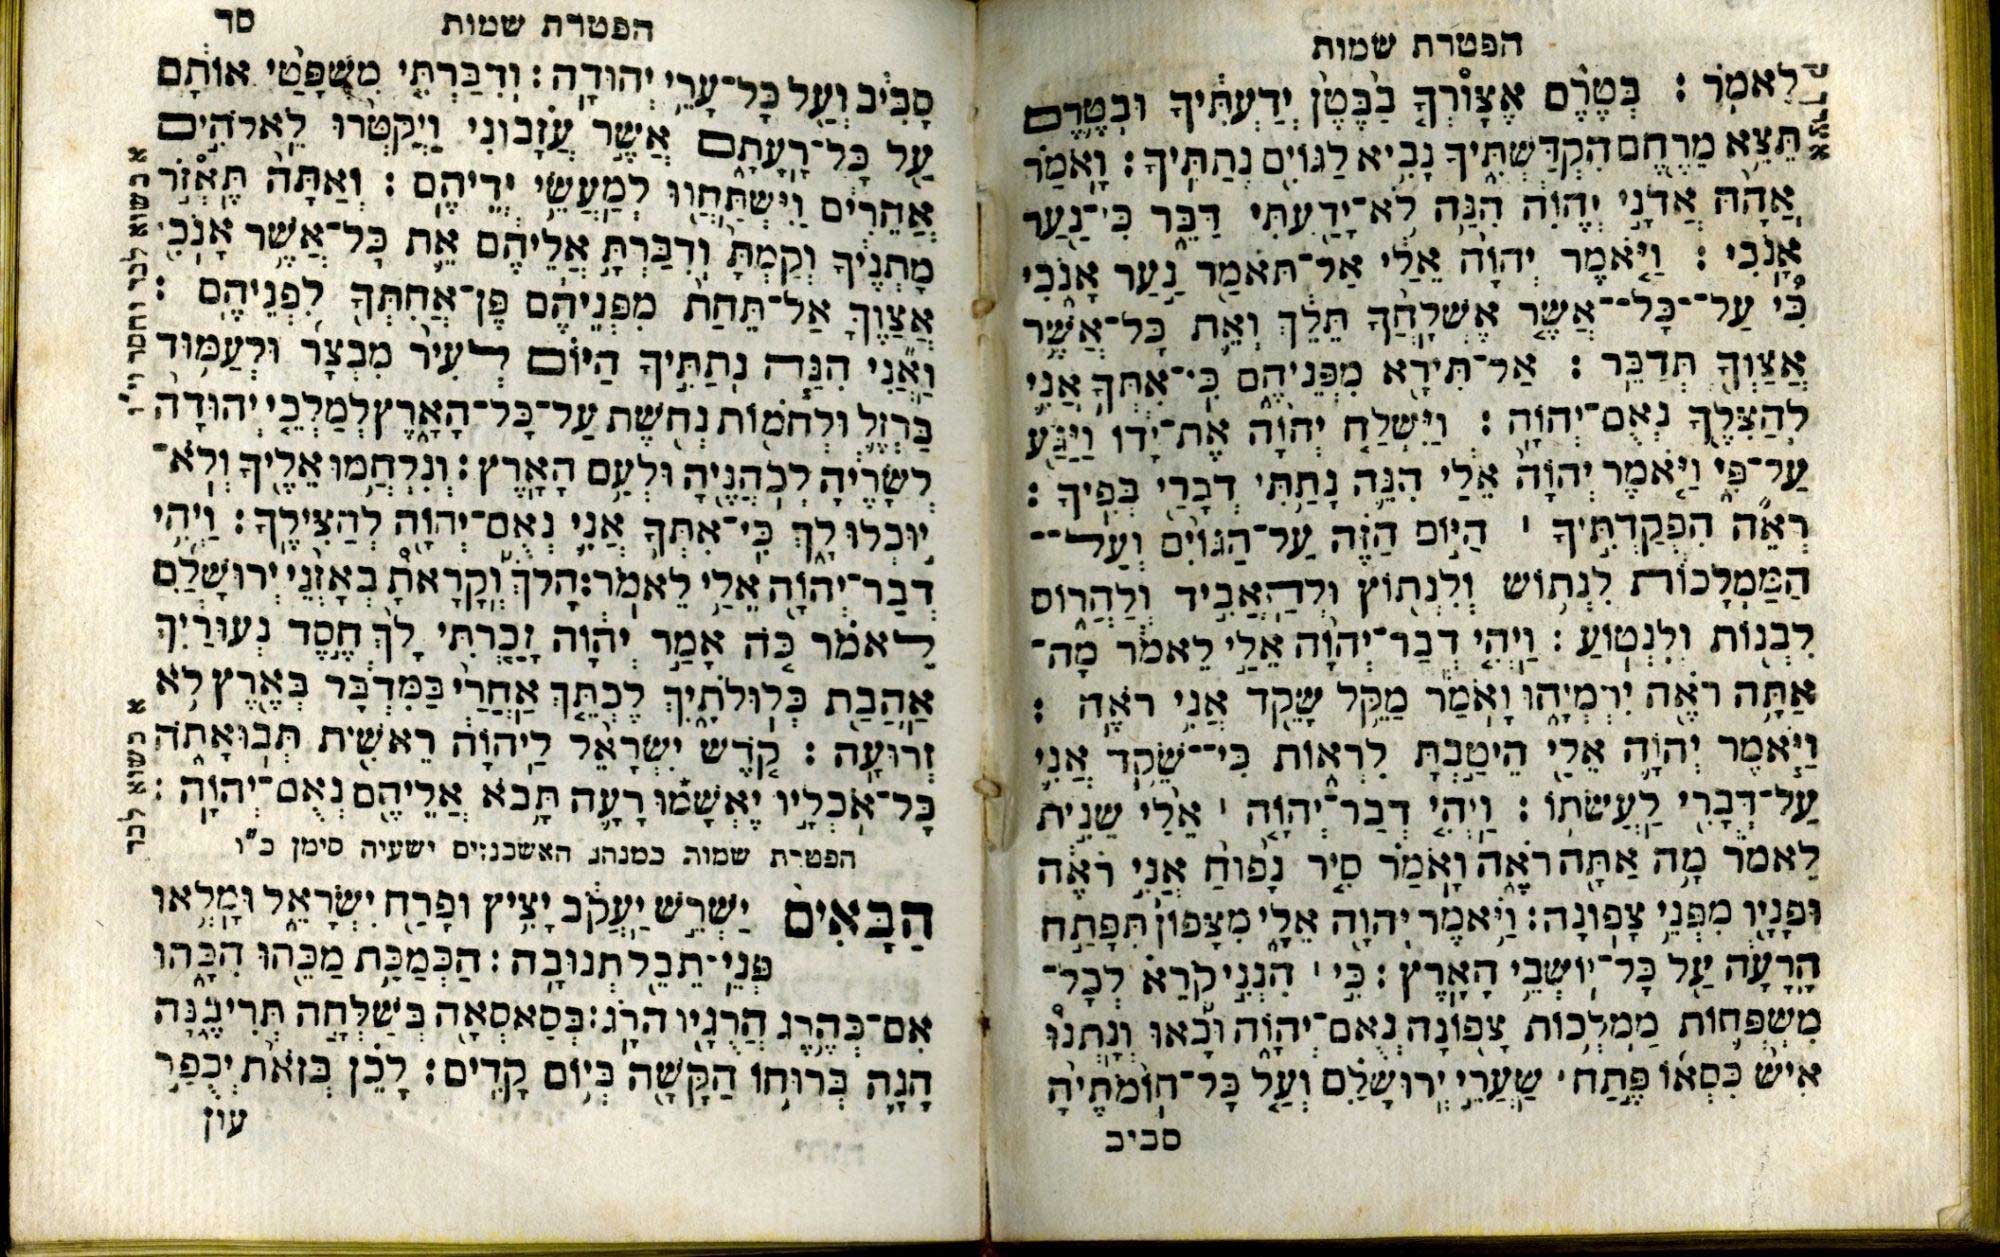 הפטרת שמות
לֵאמֹֽר׃ בְּטֶ֨רֶם אֶצָּוֹרְךָ֤ בַבֶּ֙טֶן֙ יְדַעְתִּ֔יךָ וּבְטֶ֛רֶם
תֵּצֵ֥א מֵרֶ֖חֶם הִקְדַּשְׁתִּ֑יךָ נָבִ֥יא לַגּוֹיִ֖ם נְתַתִּֽיךָ׃ וָאֹמַ֗ר
אֲהָהּ֙ אֲדֹנָ֣י יֱהֹוִ֔ה הִנֵּ֥ה לֹֽא־יָדַ֖עְתִּי דַּבֵּ֑ר כִּי־נַ֖עַר
אָנֹֽכִי׃ וַיֹּ֤אמֶר יְהֹוָה֙ אֵלַ֔י אַל־תֹּאמַ֖ר נַ֣עַר אָנֹ֑כִי
כִּ֠י עַֽל־כָּל־אֲשֶׁ֤ר אֶֽשְׁלָחֲךָ֙ תֵּלֵ֔ךְ וְאֵ֛ת כָּל־אֲשֶׁ֥ר
אֲצַוְּךָ֖ תְּדַבֵּֽר׃ אַל־תִּירָ֖א מִפְּנֵיהֶ֑ם כִּֽי־אִתְּךָ֥ אֲנִ֛י
לְהַצִּלֶ֖ךָ נְאֻם־יְהֹוָֽה׃ וַיִּשְׁלַ֤ח יְהֹוָה֙ אֶת־יָד֔וֹ וַיַּגַּ֖ע
עַל־פִּ֑י וַיֹּ֤אמֶר יְהֹוָה֙ אֵלַ֔י הִנֵּ֛ה נָתַ֥תִּי דְבָרַ֖י בְּפִֽיךָ׃
רְאֵ֞ה הִפְקַדְתִּ֣יךָ ׀ הַיּ֣וֹם הַזֶּ֗ה עַל־הַגּוֹיִם֙ וְעַל־
הַמַּמְלָכ֔וֹת לִנְת֥וֹשׁ וְלִנְת֖וֹץ וּלְהַאֲבִ֣יד וְלַהֲר֑וֹס
לִבְנ֖וֹת וְלִנְטֽוֹעַ׃ וַיְהִ֤י דְבַר־יְהֹוָה֙ אֵלַ֣י לֵאמֹ֔ר מָה־
אַתָּ֥ה רֹאֶ֖ה יִרְמְיָ֑הוּ וָאֹמַ֕ר מַקֵּ֥ל שָׁקֵ֖ד אֲנִ֥י רֹאֶֽה׃
וַיֹּ֧אמֶר יְהֹוָ֛ה אֵלַ֖י הֵיטַ֣בְתָּ לִרְא֑וֹת כִּֽי־שֹׁקֵ֥ד אֲנִ֛י
עַל־דְּבָרִ֖י לַעֲשֹׂתֽוֹ׃ וַיְהִ֨י דְבַר־יְהֹוָ֤ה ׀ אֵלַי֙ שֵׁנִ֣ית
לֵאמֹ֔ר מָ֥ה אַתָּ֖ה רֹאֶ֑ה וָאֹמַ֗ר סִ֤יר נָפ֙וּחַ֙ אֲנִ֣י רֹאֶ֔ה
וּפָנָ֖יו מִפְּנֵ֥י צָפֽוֹנָה׃ וַיֹּ֥אמֶר יְהֹוָ֖ה אֵלָ֑י מִצָּפוֹן֙ תִּפָּתַ֣ח
הָרָעָ֔ה עַ֥ל כָּל־יֹשְׁבֵ֖י הָאָֽרֶץ׃ כִּ֣י ׀ הִנְנִ֣י קֹרֵ֗א לְכָֽל־
מִשְׁפְּח֛וֹת מַמְלְכ֥וֹת צָפ֖וֹנָה נְאֻם־יְהֹוָ֑ה וּבָ֡אוּ וְֽנָתְנוּ֩
אִ֨ישׁ כִּסְא֜וֹ פֶּ֣תַח ׀ שַׁעֲרֵ֣י יְרוּשָׁלִַ֗ם וְעַ֤ל כָּל־חוֹמֹתֶ֙יהָ֙
סביב
הפטרת שמות
סד
סָבִ֔יב וְעַ֖ל כָּל־עָרֵ֥י יְהוּדָֽה׃ וְדִבַּרְתִּ֤י מִשְׁפָּטַי֙ אוֹתָ֔ם
עַ֖ל כָּל־רָעָתָ֑ם אֲשֶׁ֣ר עֲזָב֗וּנִי וַֽיְקַטְּרוּ֙ לֵאלֹהִ֣ים
אֲחֵרִ֔ים וַיִּֽשְׁתַּחֲו֖וּ לְמַעֲשֵׂ֥י יְדֵיהֶֽם׃ וְאַתָּה֙ תֶּאְזֹ֣ר
מָתְנֶ֔יךָ וְקַמְתָּ֙ וְדִבַּרְתָּ֣ אֲלֵיהֶ֔ם אֵ֛ת כָּל־אֲשֶׁ֥ר אָנֹכִ֖י
אֲצַוֶּ֑ךָּ אַל־תֵּחַת֙ מִפְּנֵיהֶ֔ם פֶּֽן־אֲחִתְּךָ֖ לִפְנֵיהֶֽם׃
וַאֲנִ֞י הִנֵּ֧ה נְתַתִּ֣יךָ הַיּ֗וֹם לְעִ֨יר מִבְצָ֜ר וּלְעַמּ֥וּד
בַּרְזֶ֛ל וּלְחֹמ֥וֹת נְחֹ֖שֶׁת עַל־כָּל־הָאָ֑רֶץ לְמַלְכֵ֤י יְהוּדָה֙
לְשָׂרֶ֔יהָ לְכֹהֲנֶ֖יהָ וּלְעַ֥ם הָאָֽרֶץ׃ וְנִלְחֲמ֥וּ אֵלֶ֖יךָ וְלֹא־
י֣וּכְלוּ לָ֑ךְ כִּֽי־אִתְּךָ֥ אֲנִ֛י נְאֻם־יְהֹוָ֖ה לְהַצִּילֶֽךָ׃ וַיְהִ֥י
דְבַר־יְהֹוָ֖ה אֵלַ֥י לֵאמֹֽר׃ הָלֹ֡ךְ וְקָרָאתָ֩ בְאָזְנֵ֨י יְרוּשָׁלִַ֜ם
לֵאמֹ֗ר כֹּ֚ה אָמַ֣ר יְהֹוָ֔ה זָכַ֤רְתִּי לָךְ֙ חֶ֣סֶד נְעוּרַ֔יִךְ
אַהֲבַ֖ת כְּלוּלֹתָ֑יִךְ לֶכְתֵּ֤ךְ אַחֲרַי֙ בַּמִּדְבָּ֔ר בְּאֶ֖רֶץ לֹ֥א
זְרוּעָֽה׃ קֹ֤דֶשׁ יִשְׂרָאֵל֙ לַיהֹוָ֔ה רֵאשִׁ֖ית תְּבוּאָתֹ֑ה
כָּל־אֹכְלָ֣יו יֶאְשָׁ֔מוּ רָעָ֛ה תָּבֹ֥א אֲלֵיהֶ֖ם נְאֻם־יְהֹוָֽה׃
הפטרת שמות כמנהג האשכנזים ישעיה סימן כ"ו
הַבָּאִים֙ יַשְׁרֵ֣שׁ יַֽעֲקֹ֔ב יָצִ֥יץ וּפָרַ֖ח יִשְׂרָאֵ֑ל וּמָלְא֥וּ
פְנֵי־תֵבֵ֖ל תְּנוּבָֽה׃ הַכְּמַכַּ֥ת מַכֵּ֖הוּ הִכָּ֑הוּ
אִם־כְּהֶ֥רֶג הֲרֻגָ֖יו הֹרָֽג׃ בְּסַאסְּאָ֖ה בְּשַׁלְחָ֣הּ תְּרִיבֶ֑נָּה
הָגָ֛ה בְּרוּח֥וֹ הַקָּשָׁ֖ה בְּי֥וֹם קָדִֽים׃ לָכֵ֗ן בְּזֹאת֙ יְכֻפַּ֣ר
עון